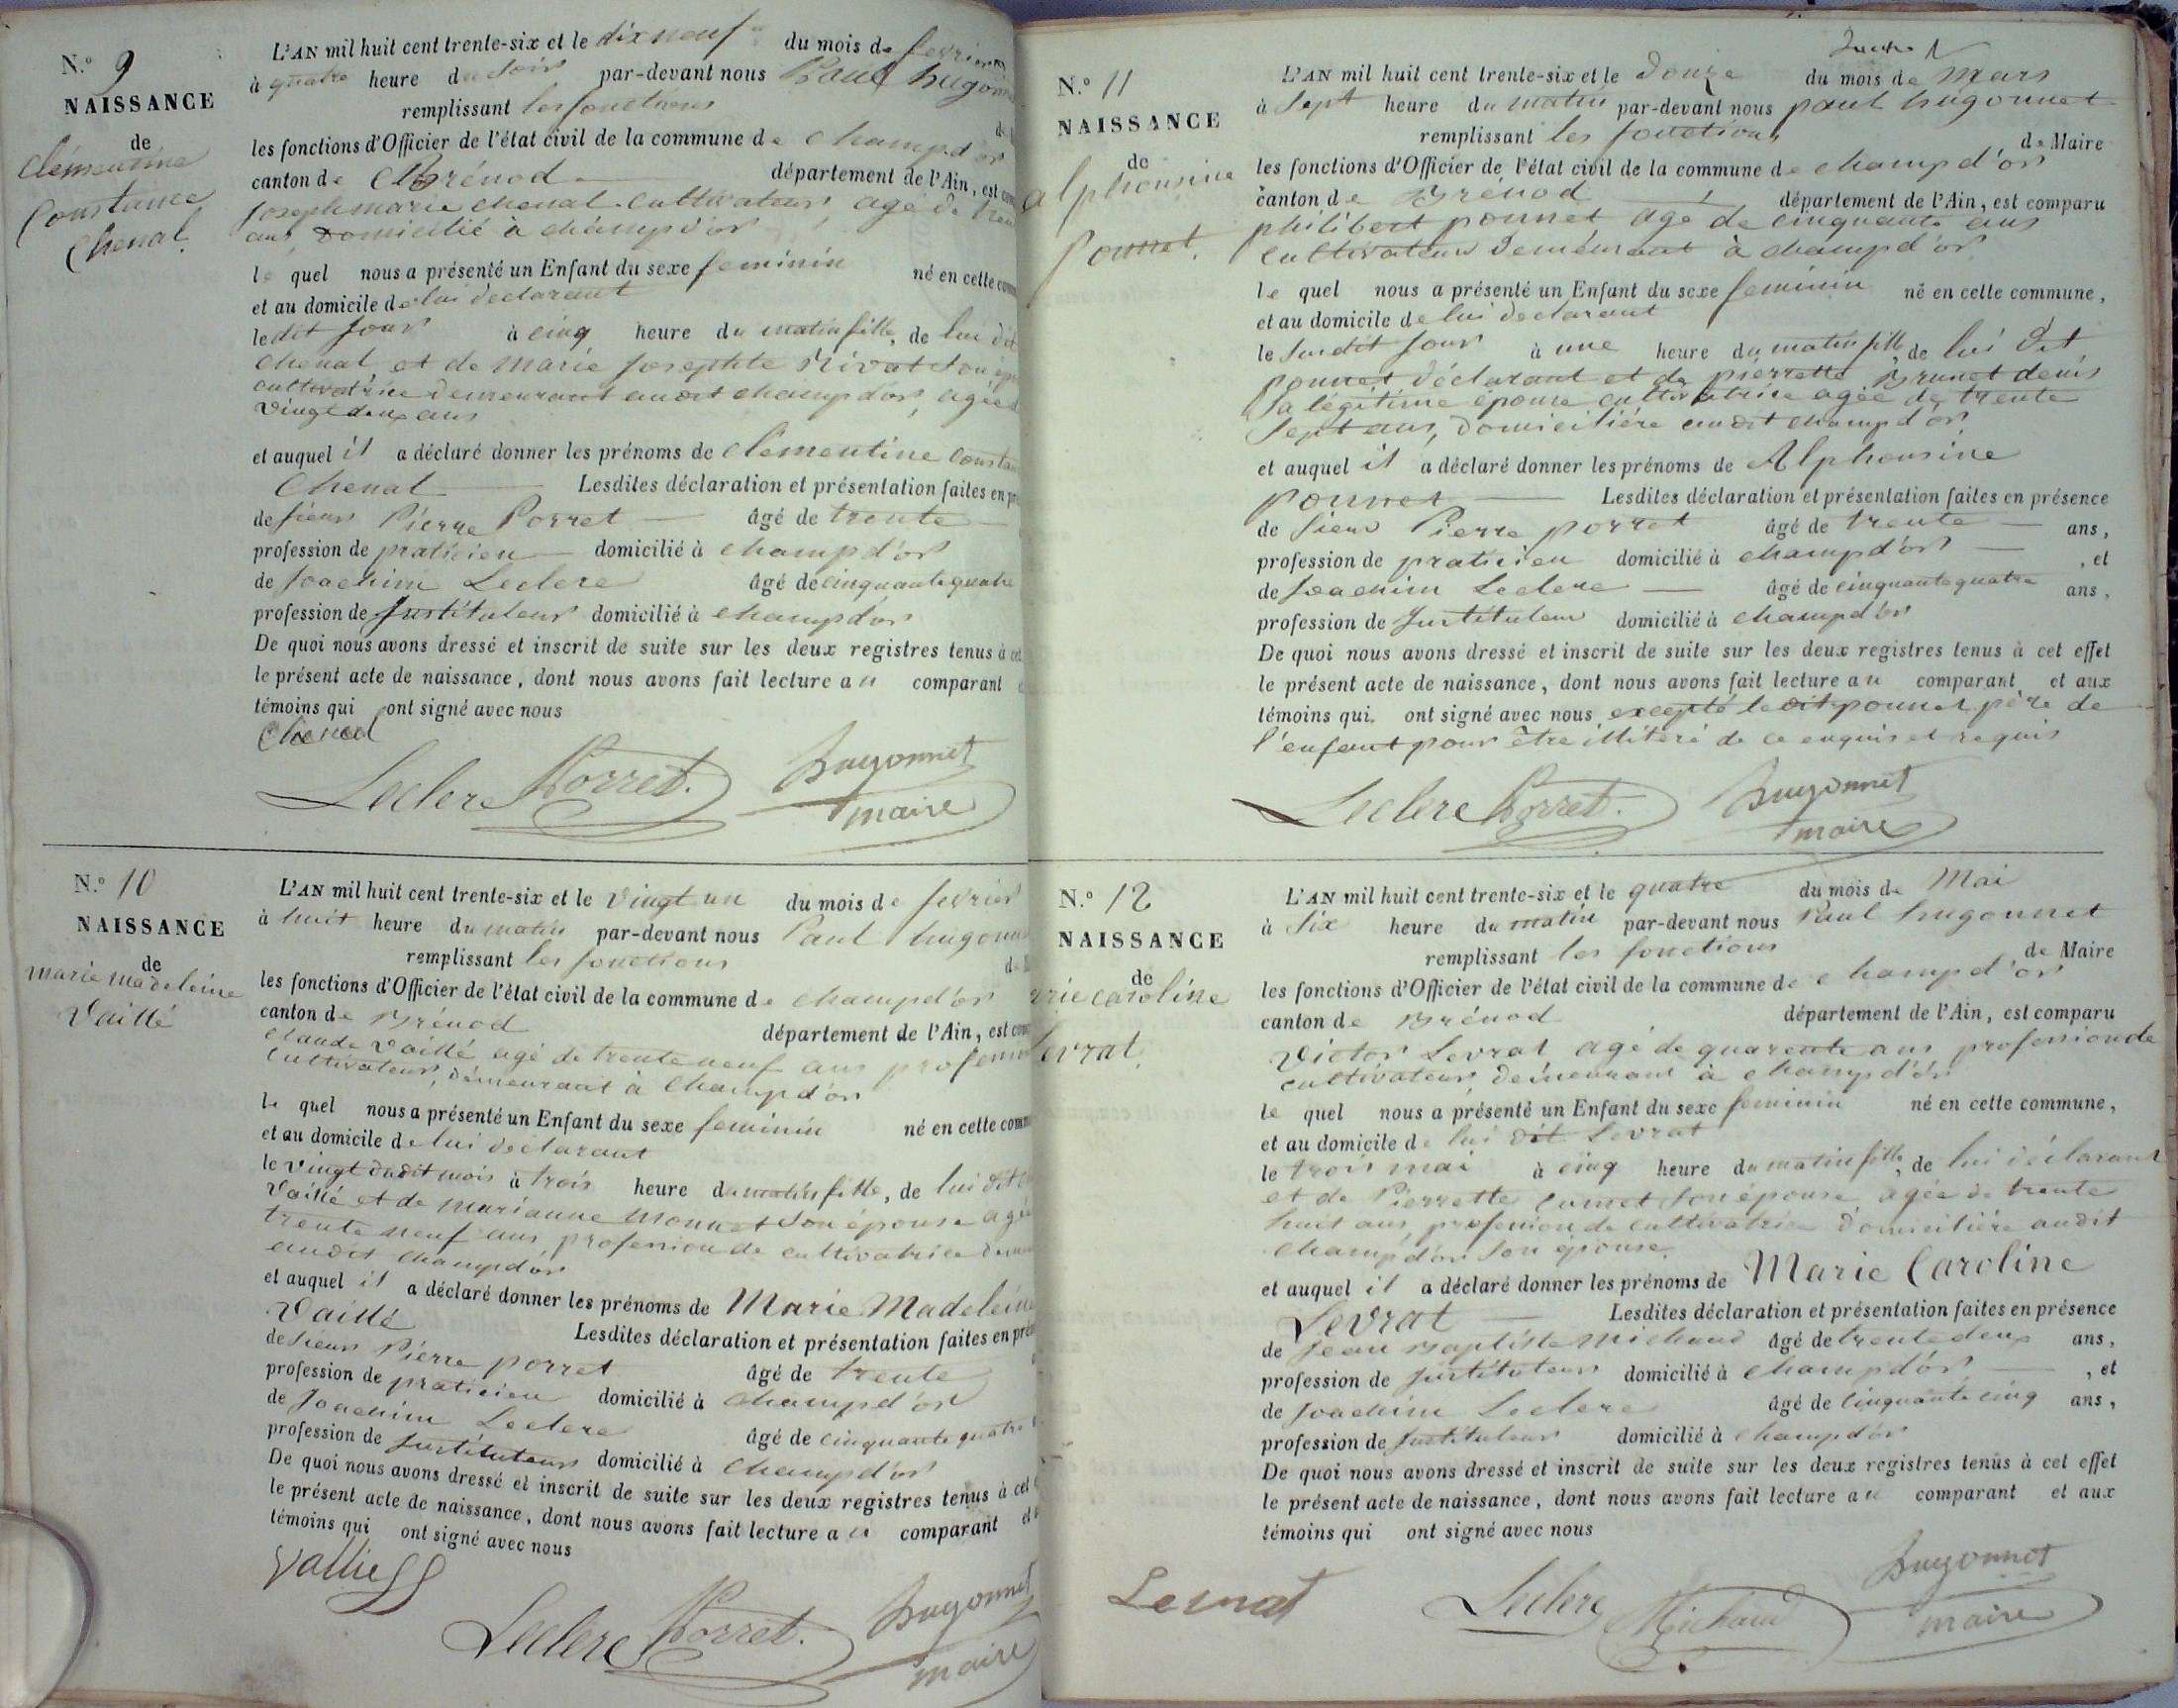 N.º 9
NAISSANCE
de
Clémentine
Constance
Chenal
L'AN mil huit cent trente-six et le dix neuf du mois de fevrier
à quatre heure du soir par-devant nous Paul hugonn
remplissant les fonctions
les fonctions d'Officier de l'état civil de la commune de champd'or
canton de Brénod département de l'Ain, est com
Joseph marie chenal cultivateur agé de tren
ans domicilié à champd'or
le quel nous a présenté un Enfant du sexe feminin né en cette com
et au domicile de lui declarant
le dit jour à cinq heure du matin fille, de lui dit
chenal et de marie Josephte Nivat son
cultivatrice demeurant audit champd'or, agée
vingt deux ans
et auquel il a déclaré donner les prénoms de clémentine constan
Chenal Lesdites déclaration et présentation faites en pr
de sieur Pierre Porret âgé de trente
profession de praticien domicilié à champd'or
de Joachim Leclerc âgé de cinquante quatre
profession de Instituteur domicilié à champd'or
De quoi nous avons dressé et inscrit de suite sur les deux registres tenus à cet
le présent acte de naissance, dont nous avons fait lecture au comparant
témoins qui ont signé avec nous
Chenal
Leclerc Porret. hugonnet
maire
N.º 10
NAISSANCE
de
marie madeleine
Vaillé
L'AN mil huit cent trente-six et le vingt un du mois de fevrier
à huit heure du matin par-devant nous Paul hugonn
remplissant les fonctions
les fonctions d'Officier de l'état civil de la commune de champd'or
canton de Brénod département de l'Ain, est com
claude vaillé agé de trente neuf ans profession
cultivateur, demeurant à Champd'or
le quel nous a présenté un Enfant du sexe feminin né en cette comm
et au domicile de lui declarant
le vingt dudit mois à trois heure du matin fille, de lui dit
vaillé et de marianne monnet son épouse agée
trente neuf ans profession de cultivatrice
audit champd'or
et auquel il a déclaré donner les prénoms de Marie Madeleine
Vaillé Lesdites déclaration et présentation faites en pré
de sieur Pierre porret âgé de trente
profession de praticien domicilié à champd'or
de Joachim Leclerc âgé de cinquante quatre
profession de Instituteur domicilié à champd'or
De quoi nous avons dressé et inscrit de suite sur les deux registres tenus à cet
le présent acte de naissance, dont nous avons fait lecture au comparant et
témoins qui ont signé avec nous
Vallie
Leclerc Porret. hugonnet
maire
N.º 11
NAISSANCE
de
alphonsine
Ponnet.
L'AN mil huit cent trente-six et le douze du mois de mars
à sept heure du matin par-devant nous paul hugonnet
remplissant les fonctions de Maire
les fonctions d'Officier de l'état civil de la commune de champd'or
canton de Brenod département de l'Ain, est comparu
philibert ponnet agé de cinquante ans
cultivateur demeurant à champd'or
le quel nous a présenté un Enfant du sexe feminin né en cette commune,
et au domicile de lui declarant
le susdit jour à une heure du matin fille de lui dit
ponnet déclarant et de pierrette Brunet denis
sa légitime épouse cultivatrice agée de trente
sept ans, domicilière audit champd'or
et auquel il a déclaré donner les prénoms de Alphonsine
ponnet Lesdites déclaration et présentation faites en présence
de sieur Pierre porret âgé de trente ans,
profession de praticien domicilié à champd'or , et
de Joachim Leclerc âgé de cinquante quatre ans,
profession de Instituteur domicilié à champd'or
De quoi nous avons dressé et inscrit de suite sur les deux registres tenus à cet effet
le présent acte de naissance, dont nous avons fait lecture au comparant et aux
témoins qui ont signé avec nous excepté ledit ponnet père de
l'enfant pour être illiteré de ce enquis et requis
Leclerc Porret. hugonnet
maire
N.º 12
NAISSANCE
de
rie caroline
Levrat.
L'AN mil huit cent trente-six et le quatre du mois de Mai
à six heure du matin par-devant nous Paul hugonnet
remplissant les fonctions de Maire
les fonctions d'Officier de l'état civil de la commune de champd'or
canton de Brénod département de l'Ain, est comparu
Victor Levrat agé de quarente ans profession de
cultivateur demeurant à champd'or
le quel nous a présenté un Enfant du sexe feminin né en cette commune,
et au domicile de lui dit Levrat
le trois mai à cinq heure du matin fille, de lui déclarant
et de Pierrette Cumet son épouse agée de trente
huit ans profession de cultivatrice domicilière audit
champd'or son épouse
et auquel il a déclaré donner les prénoms de Marie Caroline
Levrat Lesdites déclaration et présentation faites en présence
de Jean Baptiste michaud âgé de trente deux ans,
profession de Instituteur domicilié à champd'or , et
de Joachim Leclerc âgé de cinquante cinq ans,
profession de Instituteur domicilié à champd'or
De quoi nous avons dressé et inscrit de suite sur les deux registres tenus à cet effet
le présent acte de naissance, dont nous avons fait lecture au comparant et aux
témoins qui ont signé avec nous
Levrat Leclerc Michaud hugonnet
maire